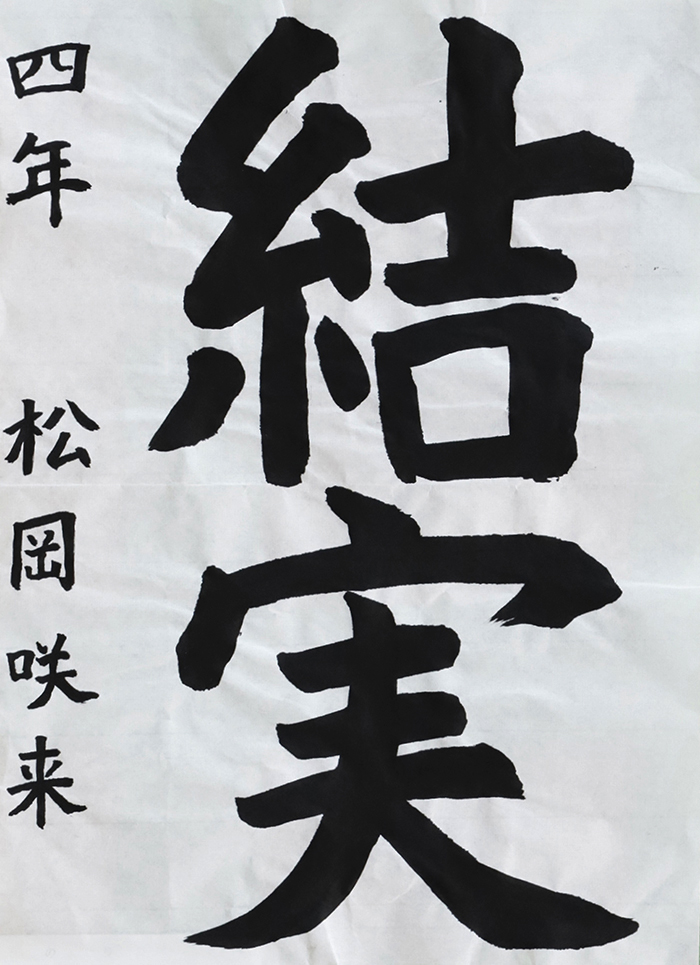 結実
四年 松岡咲来